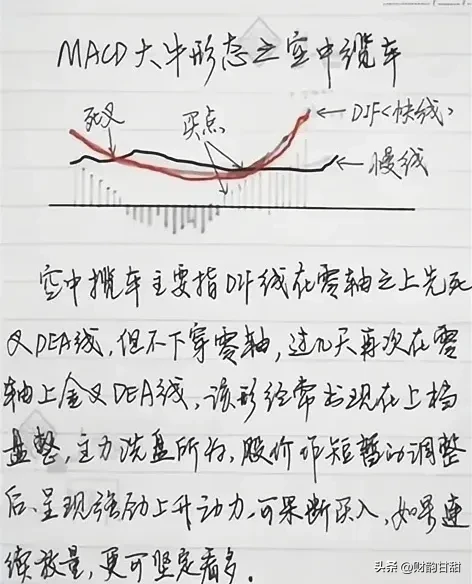 MACD大牛形态之空中缆车
死叉
买点
←DIF<快线>
←慢线
空中揽车主要指DIF线在零轴之上先死
叉DEA线,但不下穿零轴,过几天再次在零
轴上金叉DEA线,该形经常出现在上档
盘整,主力洗盘所为,股价作短暂的调整
后,呈现强劲上升动力,可果断买入,如果连
续放量,更可坚定看多。
头条@财韵甘甜